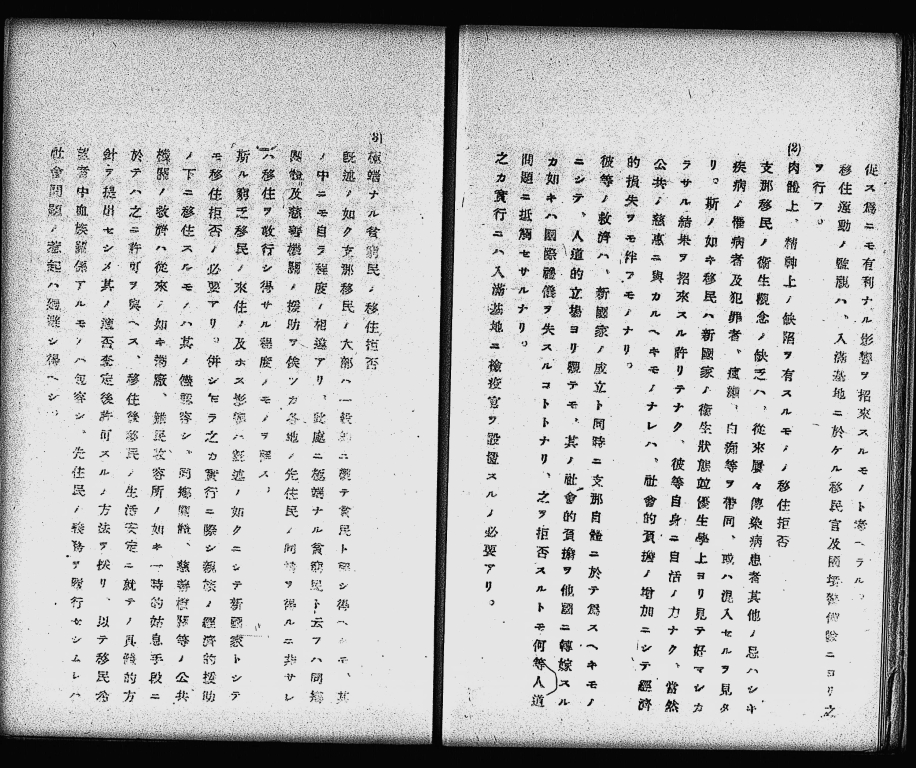 促ス爲ニモ有利ナル影響ヲ招來スルモノト考ヘラル。
移住運動ノ監視ハ、入滿基地ニ於ケル移民官及國境警備隊ニヨリ之
ヲ行フ。
(2) 肉體上、精神上ノ缺陷ヲ有スルモノノ移住拒否
支那移民ノ衞生觀念ノ缺乏ハ、從來屢々傳染病患者其他ノ忌ハシキ
疾病ノ罹病者及犯罪者、瘋癲、白痴等ヲ帶同、或ハ混入セルヲ見タ
リ。斯ノ如キ移民ハ新國家ノ衞生狀態竝優生學上ヨリ見テ好マシカ
ラサル結果ヲ招來スル許リテナク、彼等自身ニ自活ノ力ナク、當然
公共ノ慈惠ニ與カルヘキモノナレハ、社會的負擔ノ增加ニシテ經濟
的損失ヲモ伴フモノナリ。
彼等ノ救濟ハ、新國家ノ成立ト同時ニ支那自體ニ於テ爲スヘキモノ
ニシテ、人道的立場ヨリ觀テモ、其ノ社會的負擔ヲ他國ニ轉嫁スル
カ如キハ國際禮儀ヲ失スルコトトナリ、之ヲ拒否スルトモ何等人道
問題ニ抵觸セサルナリ。
之カ實行ニハ入滿基地ニ檢疫官ヲ設置スルノ必要アリ。
3) 極端ナル貧窮民ノ移住拒否
既述ノ如ク支那移民ノ大部ハ一般的ニ觀テ貧民ト稱シ得ヘキモ、其
ノ中ニモ自ラ程度ノ相違アリ、此處ニ極端ナル貧窮民ト云フハ同鄕
團體及慈善機關ノ援助ヲ俟ツカ各地ノ先住民ノ同情ヲ得ルニ非サレ
ハ移住ヲ敢行シ得サル程度ノモノヲ云フ。
斯ル窮乏移民ノ來住ノ及ホス影響ハ既述ノ如クニシテ新國家トシテ
モ移住拒否ノ必要アリ。併シ乍ラ之カ實行ニ際シ親族ノ經濟的援助
ノ下ニ移住スルモノハ其ノ儘認容シ、同鄕團體、慈善機關等ノ公共
機關ノ救濟ハ從來ノ如キ粥廠、難民收容所ノ如キ一時的姑息手段ニ
於テハ之ニ許可ヲ與ヘス、移住後移民ノ生活安定ニ就テノ具體的方
針ヲ提出セシメ其ノ適否査定後許可スルノ方法ヲ採リ、以テ移民希
望者中血族關係アルモノハ包容シ、先住民ノ義務ヲ履行セシムレハ
社會問題ノ惹起ハ廻避シ得ヘシ。